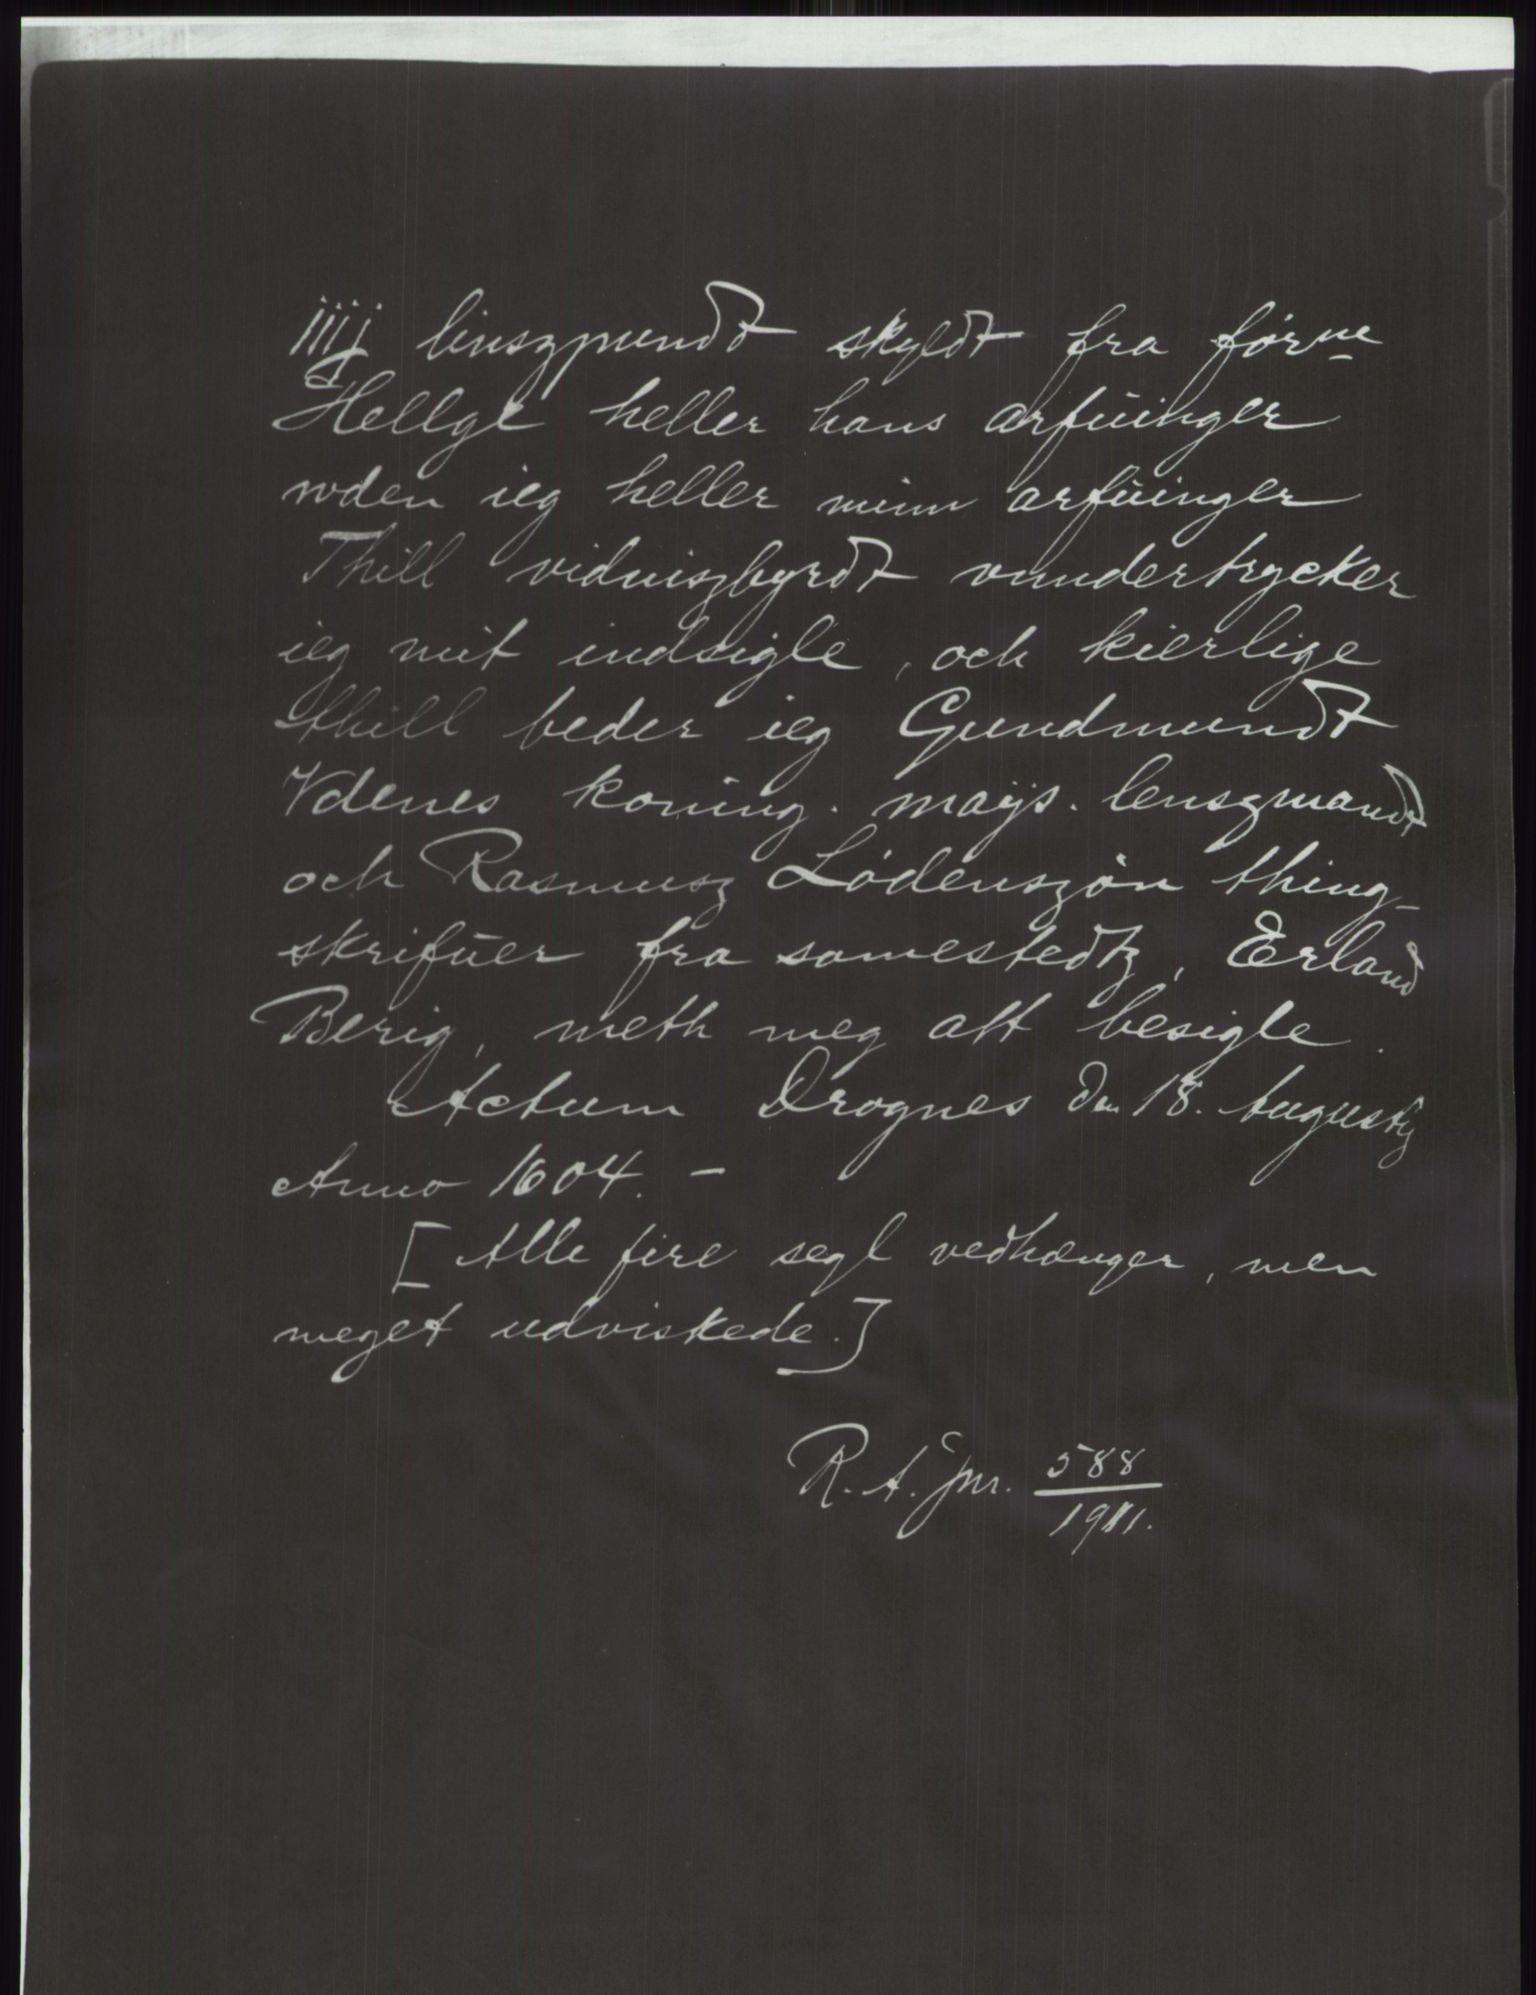 iiij linszpundt skyldt fra förne
Hellge heller hans arfüinger
wden ieg heller minn arfüinger
Thill vidniszbyrdt vnndertrycker
ieg mit indsigle, och kierlige
thill beder ieg Gundmundt
Vdenes koning. mays. lenszmandt
och Rasmusz Lödenszön thing-
skrifüer fra samestedtz, Erland
Berig, meth meg att besigle.
Actum Drognes den 18. Augustij
Anno 1604. -
[Alle fire segl vedhænger, men
meget udviskede.]
R. A. jnr. 588
1911.